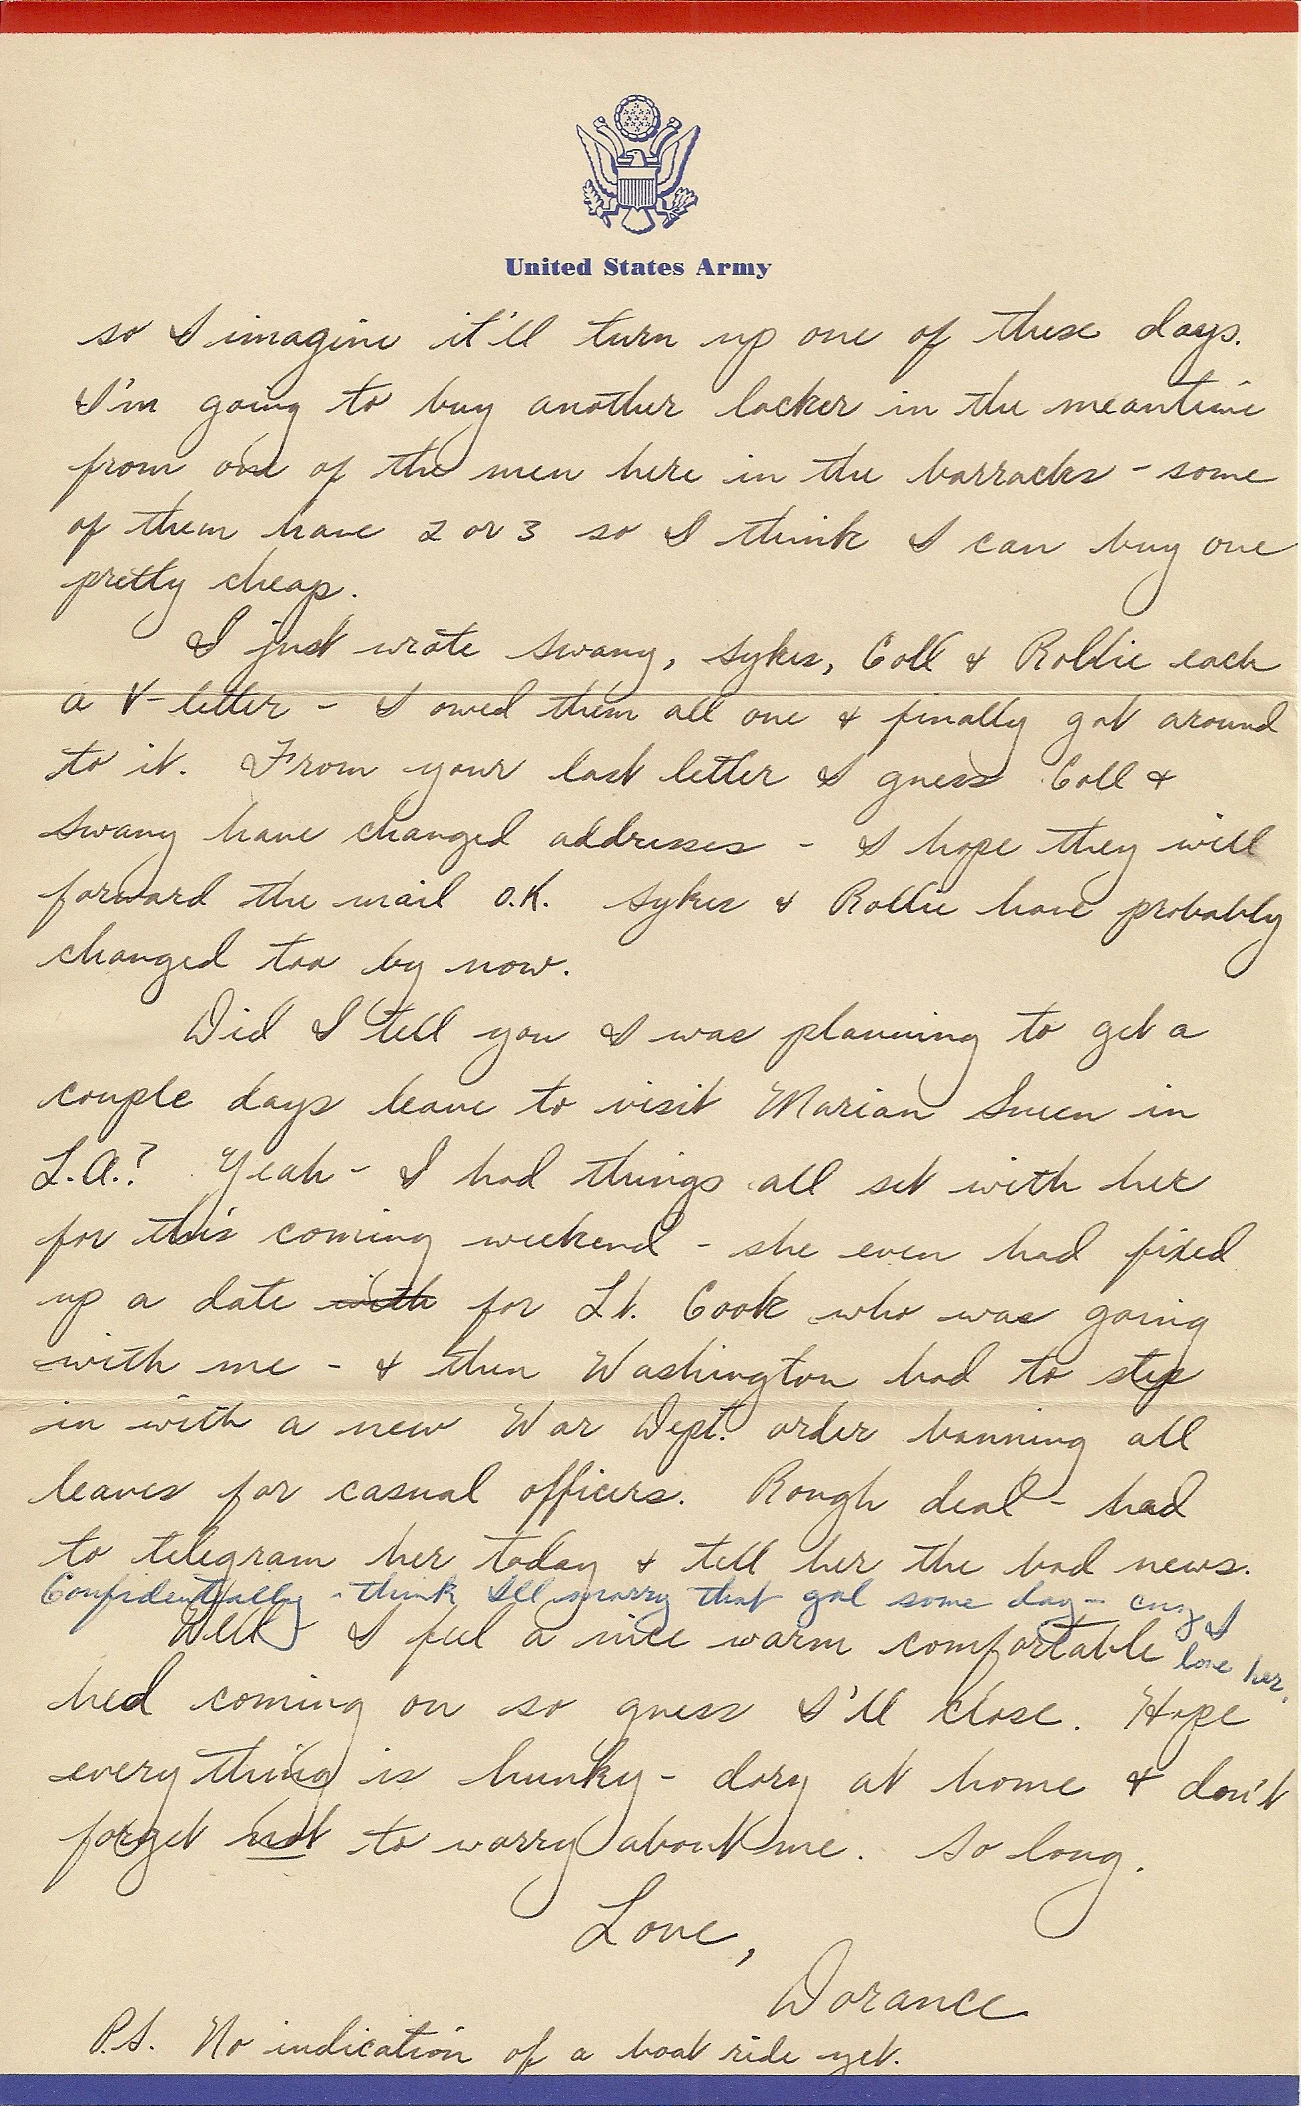 United States Army
so I imagine it'll turn up one of these days.
I'm going to buy another locker in the meantime
from one of the men here in the barracks - some
of them have 2 or 3 so I think I can buy one
pretty cheap.
I just wrote Swany, Sykes, Coll & Rollie each
a V-letter - I owed them all one & finally got around
to it. From your last letter I guess Coll &
Swany have changed addresses - I hope they will
forward the mail O.K. Sykes & Rollie have probably
changed too by now.
Did I tell you I was planning to get a
couple days leave to visit Marian in
L.A.? Yeah - I had things all set with her
for this coming weekend - she even had fixed
up a date with for Lt. Cook who was going
with me - & then Washington had to step
in with a new War Dept. order banning all
leaves for casual officers. Rough deal - had
to telegram her today & tell her the bad news.
Confidentially - think I'll marry that gal some day - cuz I
love her.
Well I feel a nice warm comfortable
bed coming on so guess I'll close. Hope
everything is hunky-dory at home & don't
forget not to worry about me. So long.
Love,
Dorance
P.S. No indication of a boat ride yet.